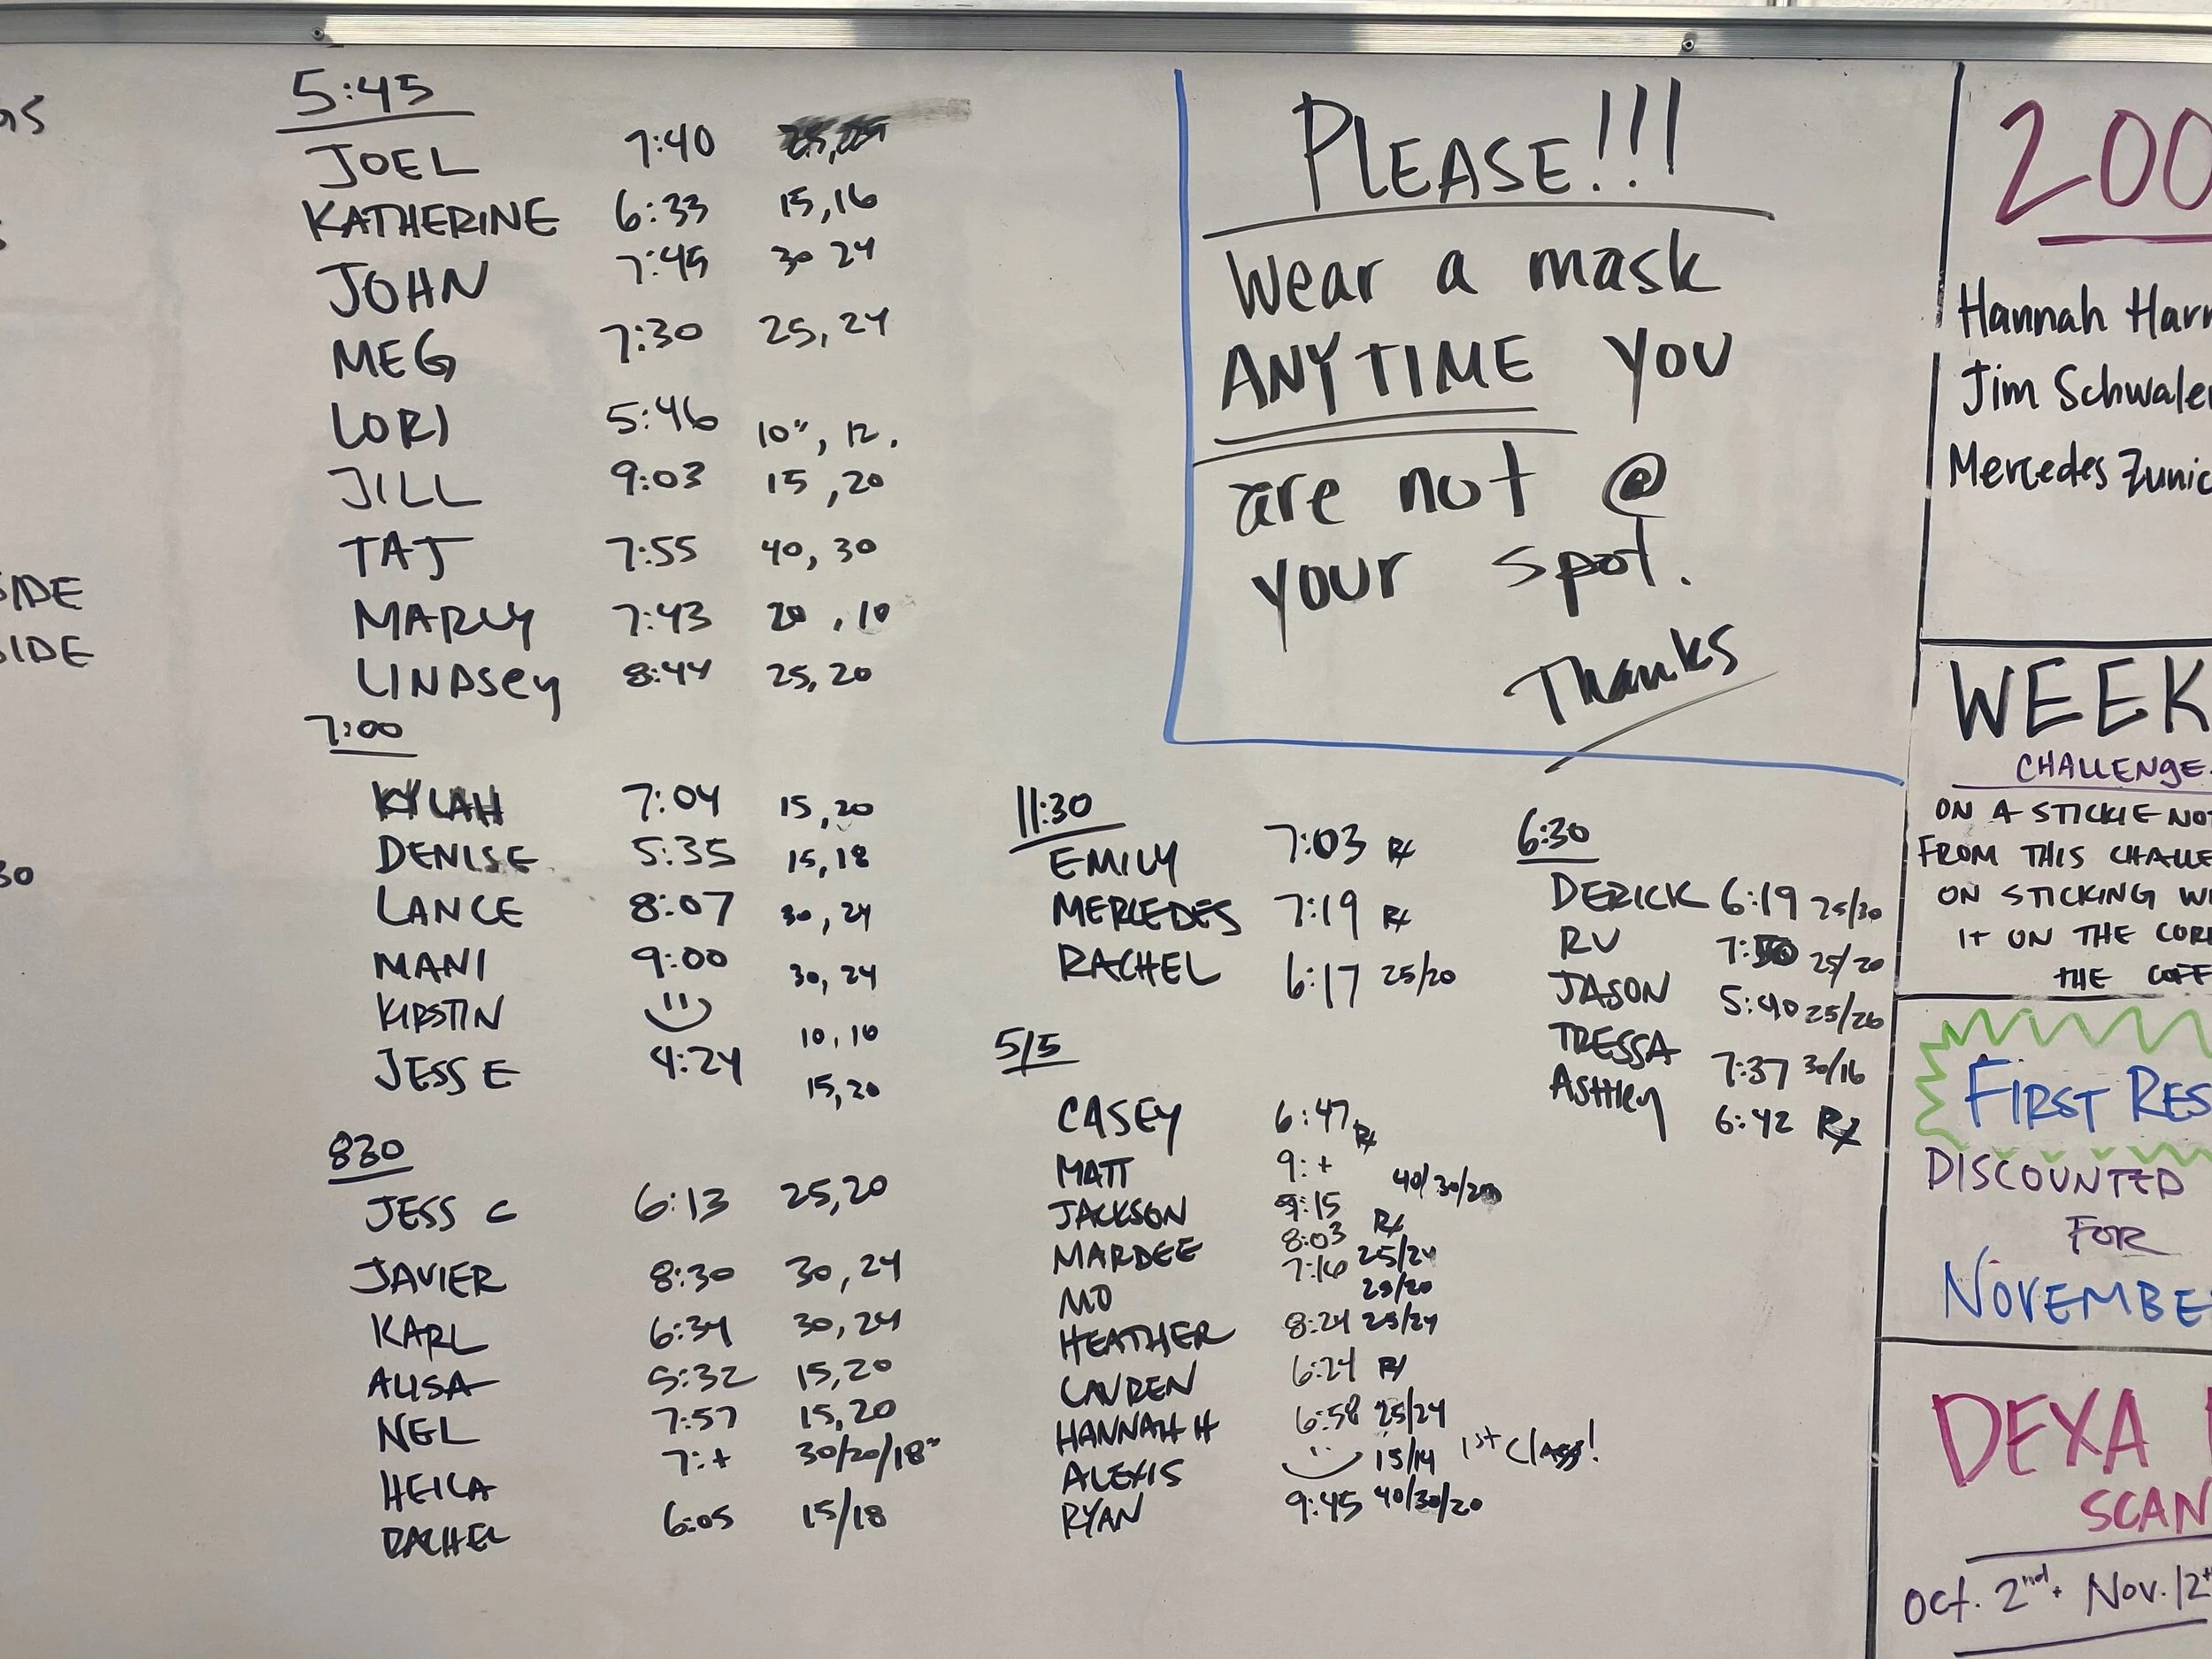 5:45
JOEL 7:40
KATHERINE 6:33 15,16
JOHN 7:45 30 24
MEG 7:30 25,24
LORI 5:46 10", 12.
JILL 9:03 15,20
TAJ 7:55 40,30
MARLY 7:43 20,10
LINDSEY 8:44 25,20
7:00
KYLAH 7:04 15,20
DENISE 5:35 15,18
LANCE 8:07 30,24
MANI 9:00 30,24
KIRSTIN 10,10
JESS E 4:24 15,20
830
JESS C 6:13 25,20
JAVIER 8:30 30,24
KARL 6:34 30,24
ALISA 5:32 15,20
NEL 7:57 15,20
HEILA 7:+ 30/20/18"
RACHEL 6:05 15/18
PLEASE!!!
Wear a mask
ANYTIME YOU
are not @
your spot.
Thanks
11:30
EMILY 7:03 Rx
MERCEDES 7:19 Rx
RACHEL 6:17 25/20
5/5
CASEY 6:47 Rx
MATT 9:+ 40/30/20
JACKSON 9:15 Rx
MARDEE 8:03 25/24
MO 7:16 25/20
HEATHER 8:24 25/24
LAUREN 6:24 Rx
HANNAH H 6:58 25/24
ALEXIS 15/14 1st Class!
RYAN 9:45 40/30/20
6:30
DERICK 6:19 25/30
RV 25/20
JASON 5:40 25/26
TRESSA 7:37 30/16
ASHley 6:42 Rx
200
Hannah Harr
Jim Schwale
Mercedes Zunic
WEEK
CHALLENGE
ON A STICKIE NOT
FROM THIS CHALLE
ON STICKING WI
IT ON THE COR
THE COFF
FIRST RES
DISCOUNTED
FOR
NOVEMBE
DEXA
SCAN
Oct. 2nd. Nov. 12t
SIDE
SIDE
30